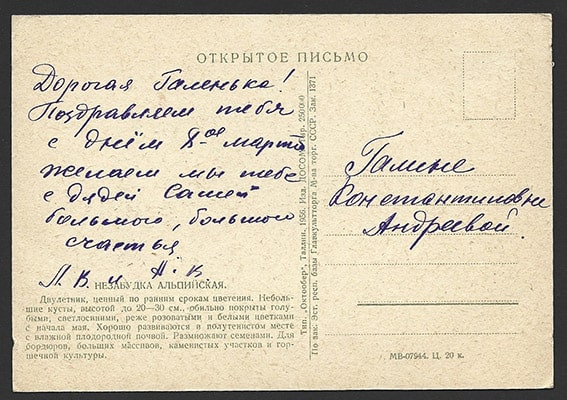 ОТКРЫТОЕ ПИСЬМО
Дорогая Галенька!
Поздравляем тебя
с днём 8ое марта
желаем мы тебе
с дядей Сашей
большого, большого
счастья
Л. В и А. В
НЕЗАБУДКА АЛЬПИЙСКАЯ.
Двулетник, ценный по ранним срокам цветения. Неболь-
шие кусты, высотой до 20—30 см, обильно покрыты голу-
быми, светлосиними, реже розоватыми и белыми цветками
с начала мая. Хорошо развиваются в полутенистом месте
с влажной плодородной почвой. Размножают семенами. Для
бордюров, больших массивов, каменистых участков и гор-
шечной культуры.
Тип. „Октообер", Таллин, 1956. Изд. ДОСОМ. Тир. 250000
По зак. Эст. респ. базы Главкультторга М-ва торг. СССР. Зак. 1371
Галине
Константиновне
Андреевой.
МВ-07944. Ц. 20 к.